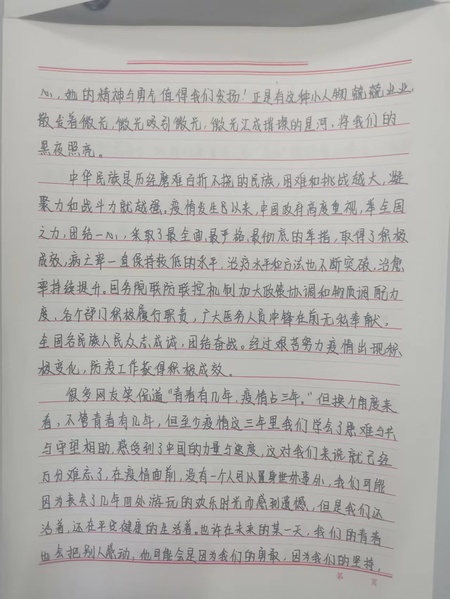 心，她的精神与勇气值得我们发扬！正是有这种小人物兢兢业业
散发着微光，微光吸引微光，微光汇成璀璨的星河，将我们的
黑夜照亮。
中华民族是历经磨难百折不挠的民族，困难和挑战越大，凝
聚力和战斗力就越强。疫情发生以来，中国政府高度重视，举全国
之力，团结一心，采取了最全面最严格最彻底的举措，取得了积极
成效，病亡率一直保持较低的水平，治疗水平和方法也不断突破，治愈
率持续提升。国务院联防联控机制加大政策协调和物质调配力
度，各个部门积极履行职责，广大医务人员冲锋在前无私奉献。
全国各民族人民众志成诚，团结奋战。经过艰苦努力疫情出现积
极变化，防疫工作获得积极成效。
很多网友笑侃道“青春有几年，疫情占三年。”但换个角度来
看，不管青春有几年，但至少疫情这三年里我们学会了患难与共
与守望相助，感受到了中国的力量与速度，这对我们来说就已经
万分难忘了，在疫情面前，没有一个人可以置身世外事外，我们可能
因为丢失了几年四处游玩的欢乐时光而感到遗憾，但是我们还
活着，还在平安健康的生活着。也许在未来的某一天，我们的青春
也会把别人感动，他可能会是因为我们的勇敢，因为我们的坚持，
第 页